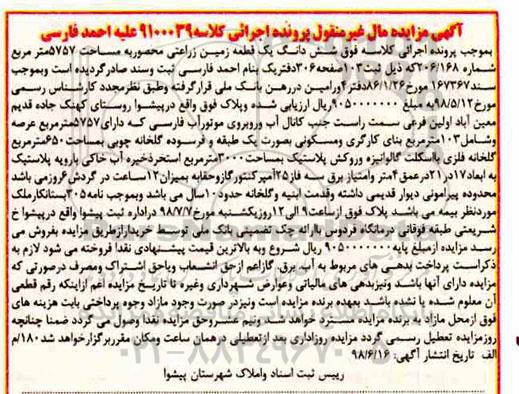 آگهی مزایده مال غیرمنقول پرونده اجرائی کلاسه۹۱۰۰۰۳۹ علیه احمد فارسی
بموجب پرونده اجرائی کلاسه فوق شش دانگ یک قطعه زمین زراعتی محصوربه مساحت ۵۷۵۷متر مربع
شماره ۲۰۶/۱۶۸که ذیل ثبت۱۰۳صفحه۳۰۶دفتریک بنام احمد فارسی ثبت وسند صادرگردیده است وبموجب
سند ۱۶۷۳۶۷مورخ۸۶/۱/۲۶دفتر۴ورامین دررهن بانک ملی قرارگرفته وطبق نظرمجدد کارشناس رسمی
مورخ۹۸/۵/۱۲به مبلغ ۹۰۵۰۰۰۰۰۰۰ریال ارزیابی شده وپلاک فوق واقع درپیشوا روستای کهنک جاده قدیم
معین آباد اولین فرعی سمت راست جنب کانال آب وروبروی موتورآب فارسی که دارای۵۷۵۷مترمربع عرصه
وشامل۱۰۳مترمربع بنای کارگری ومسکونی بصورت یک طبقه و فرسوده گلخانه چوبی بمساحت۶۵۰مترمربع
گلخانه فلزی بااسکلت گالوانیزه وروکش پلاستیک بمساحت۳۰۰۰مترمربع استخرذخیره آب خاکی بارویه پلاستیک
به ابعاد۱۷در۲۱درعمق۴متر وامتیاز برق سه فاز۲۵آمپرکنتورگازوحقابه بمیزان۱۲ساعت در گردش۶روزمی باشد
محدوده پیرامونی دیوار قدیمی داشته وقدمت ابنیه وگلخانه حدود۱۰سال می باشد وبموجب نامه۳۰۵بستانکارملک
موردنظر بیمه می باشد پلاک فوق ازساعت۹الی۱۲روزیکشنبه مورخ۹۸/۷/۷ دراداره ثبت پیشوا واقع درپیشوا خ
شریعتی طبقه فوقانی درمانگاه فردوس باارائه چک تضمینی بانک ملی توسط خریدارازطریق مزایده بفروش می
رسد مزایده ازمبلغ پایه۹۰۵۰۰۰۰۰۰۰ ریال شروع وبه بالاترین قیمت پیشنهادی نقدا فروخته می شود لازم به
ذکراست پرداخت بدهی های مربوط به آب برق گازاعم ازحق انشعاب وياحق اشتراک ومصرف درصورتی که
مزایده دارای آنها باشد ونیزبدهی های مالیاتی وعوارض شهرداری وغیره تا تاریخ مزایده اعم ازاینکه رقم قطعی
آن معلوم شده یا نشده باشد بعهده برنده مزایده است ونیزدر صورت وجود مازاد وجوه پرداختی بابت هزینه های
فوق ازمحل مازاد به برنده مزایده مسترد خواهد شد ونیم عشروحق مزایده نقدا وصول می گردد ضمنا چنانچه
روزمزایده تعطیل رسمی گردد مزایده روزاداری بعد ازتعطیلی درهمان ساعت ومکان مقرربرگزارخواهد شد۱۸۰/م
الف تاریخ انتشار آگهی: ۹۸/۶/۱۶
رییس ثبت اسناد واملاک شهرستان پیشوا